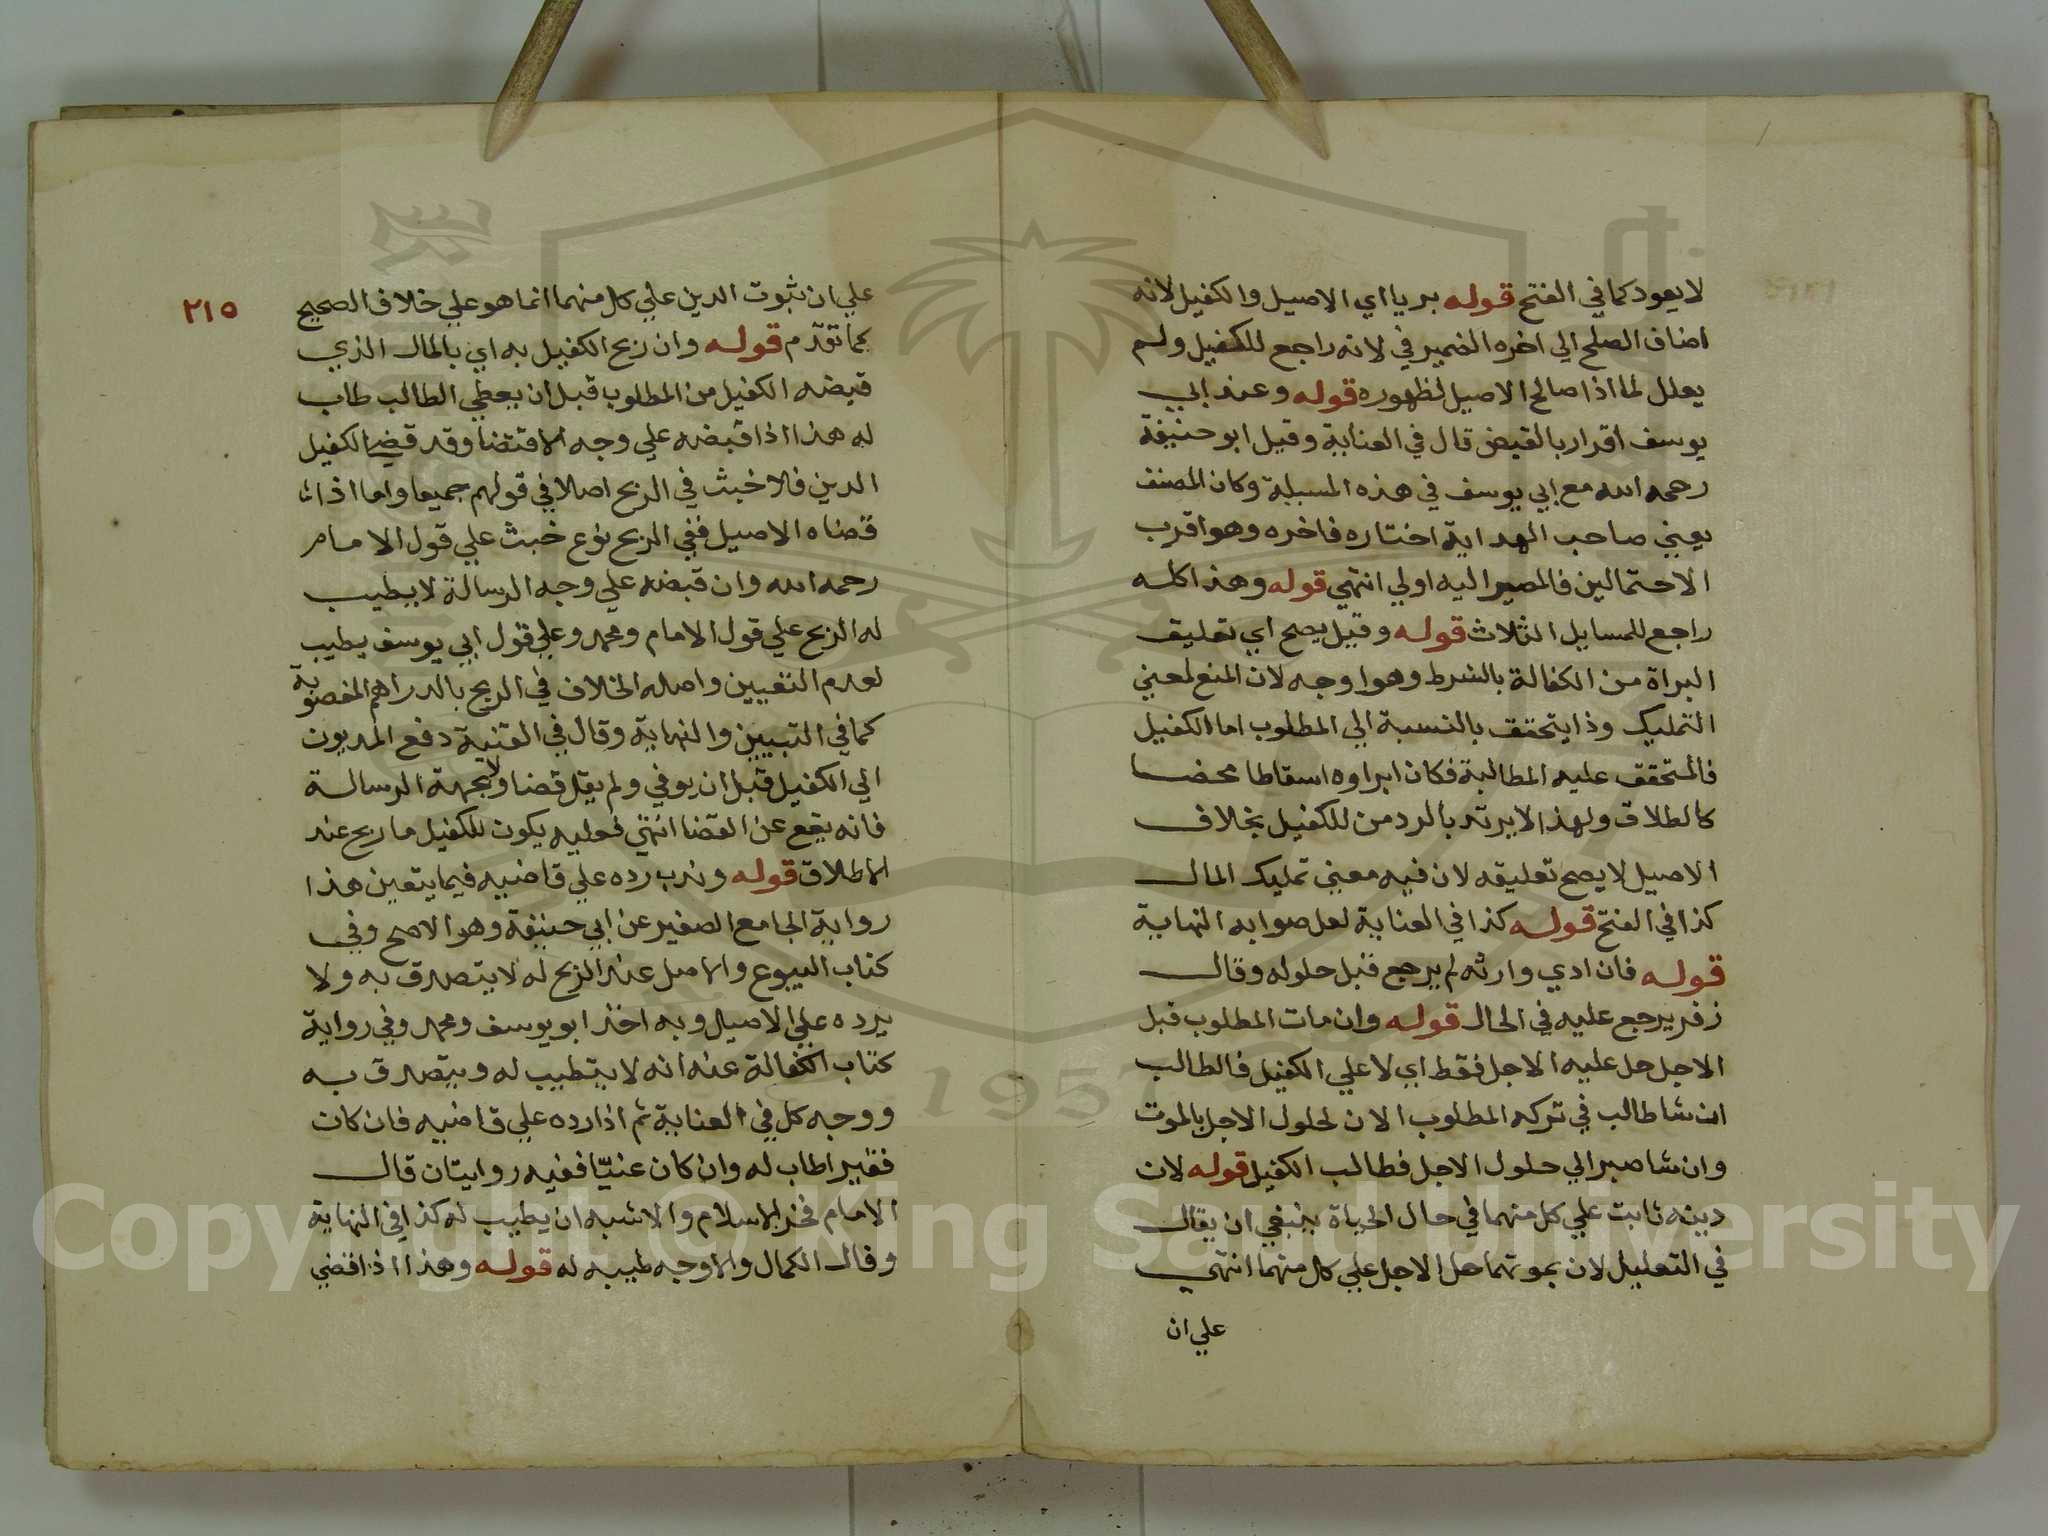 لا يعود كما في الفتح قوله بريا اي الاصيل والكفيل لانه
اضاف الصلح الي اخره الضمير في لانه راجع للكفيل ولم
يعلل لما اذا صالح الاصيل لظهوره قوله وعند ابي
يوسف اقرار بالقبض قال في العناية وقيل ابو حنيفة
رحمه الله مع ابي يوسف في هذه المسيلة وكان المصنف
يعني صاحب الهداية اختاره فاخره وهو اقرب
الاحتمالين فالمصير اليه اولي انتهي قوله وهذا كله
راجع للمسايل الثلاث قوله وقيل يصح اي تعليق
البراة من الكفالة بالشرط وهو اوجه لان المنع لمعني
التمليك وذا يتحقق بالنسبة الي المطلوب اما الكفيل
فالمتحقق عليه المطالبة فكان ابراوه اسقاطا محضا
كالطلاق ولهذا لا يرتد بالرد من للكفيل بخلاف
الاصيل لا يصح تعليقه لان فيه معني تمليك المال
كذا في الفتح قوله كذا في العناية لعل صوابه النهاية
قوله فان ادي وارثه لم يرجع قبل حلوله وقال
زفر يرجع عليه في الحال قوله وان مات المطلوب قبل
الاجل حل عليه الاجل فقط اي لا علي الكفيل فالطالب
ان شا طالب في تركه المطلوب الان لحلول الاجل بالموت
وان شا صبر الي حلول الاجل فطالب الكفيل قوله لان
دينه ثابت علي كل منهما في حال الحياة ينبغي ان يقال
في التعليل لان بموتهما حل الاجل علي كل منهما انتهي
علي ان
٢١٥
علي ان ثبوت الدين علي كل منهما انما هو علي خلاف الصحيح
كما تقدم قوله وان ربح الكفيل به اي بالمال الذي
قبضه الكفيل من المطلوب قبل ان يعطي الطالب طاب
له هذا اذا قبضه علي وجه الاقتضا وقد قضي الكفيل
الدين فلا خبث في الربح اصلا في قولهم جميعا واما اذا
قضاه الاصيل ففي الربح نوع خبث علي قول الامام
رحمه الله وان قبضه علي وجه الرسالة لا يطيب
له الربح علي قول الامام ومحمد وعلي قول ابي يوسف يطيب
لعدم التعيين واصله الخلاف في الربح بالدراهم المغصوبة
كما في التبيين والنهاية وقال في القنية دفع المديون
الي الكفيل قبل ان يوفي ولم يقل قضا ولا بجهة الرسالة
فانه يقع عن القضا انتهي فعليه يكون للكفيل ما ربح عند
الاطلاق قوله وندب رده علي قاضيه فيما يتعين هذا
رواية الجامع الصغير عن ابي حنيفة وهو الاصح وفي
كتاب البيوع والاصل عنه الربح له لا يتصدق به ولا
يرده علي الاصيل وبه اخذ ابو يوسف ومحمد وفي رواية
كتاب الكفالة عنه انه لا يتطيب له ويتصدق به
ووجه كل في العناية ثم اذا رده علي قاضيه فان كان
فقيرا طاب له وان كان غنيا ففيه روايتان قال
الامام فخر الاسلام والاشبه ان يطيب له كذا في النهاية
وقال الكمال والاوجه طيبه له قوله وهذا اذا قضي
Copyright © King Saud University
1957